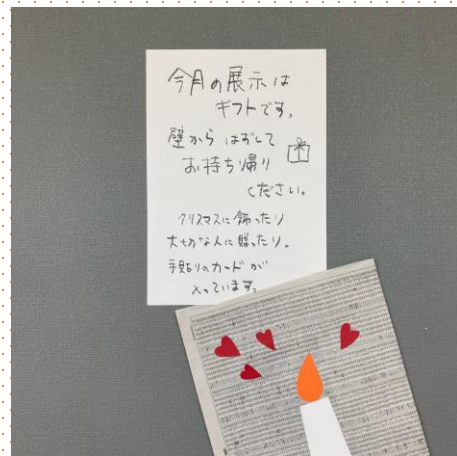 今月の展示は
ギフトです。
壁からはずして
お持ち帰り
ください。
クリスマスに飾ったり
大切な人に贈ったり。
手貼りのカードが
入っています。